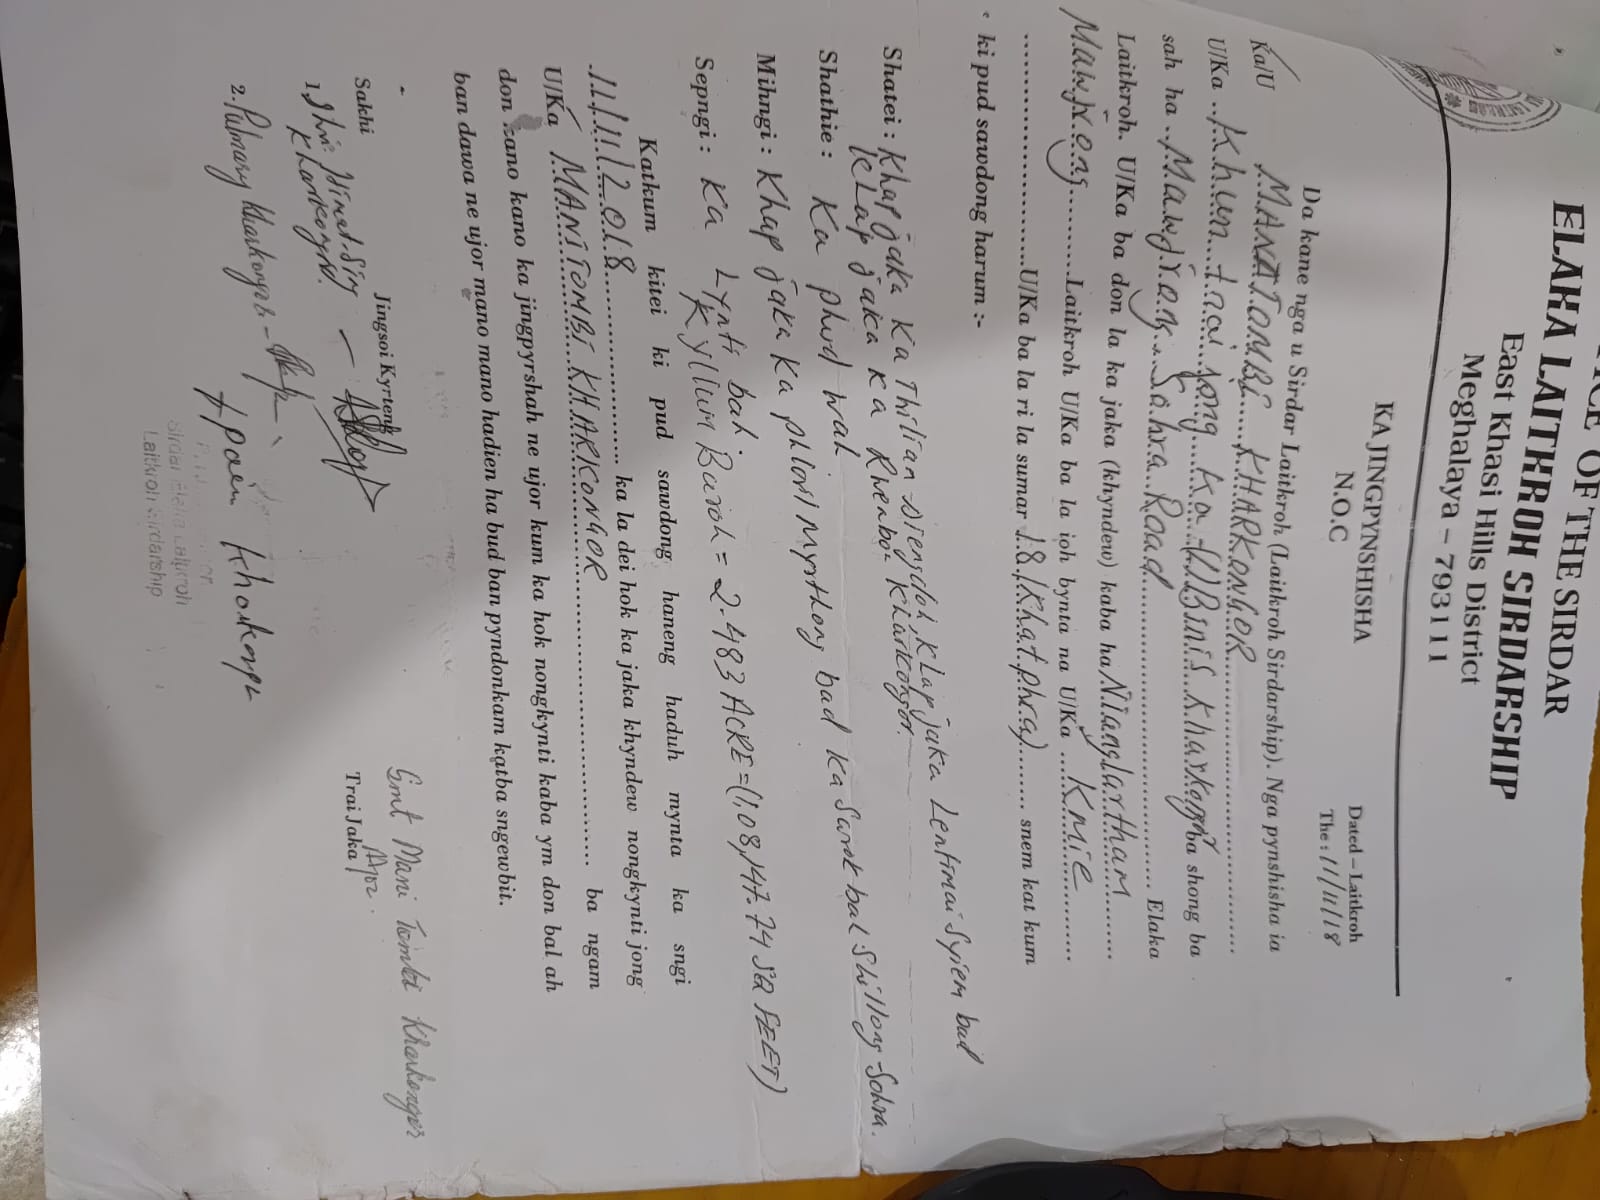 OF THE SIRDAR
ELAKA LAITKROH SIRDARSHIP
East Khasi Hills District
Meghalaya – 793111
KA JINGPYNSHISHA
N.O.C
Dated – Laitkroh
The : 11/11/18
Da kane nga u Sirdar Laitkroh (Laitkroh Sirdarship). Nga pynshisha ia
Ka/U MANITOMBI KHARKONGOR
U/Ka Khun trai jong Ka (L) Binis Kharkongor ba shong ba
sah ha Mawjrong Sohra Road Elaka
Laitkroh. U/Ka ba don la ka jaka (khyndew) kaba ha Nianglartham
Mawjrong Laitkroh U/Ka ba la ioh bynta na U/Ka Kmie
U/Ka ba la ri la sumar 18 (Khatphra) snem kat kum
ki pud sawdong harum :-
Shatei : Khap jaka Ka Thrlian siejdoh, khap jaka Lentimai Syiem bad
khap jaka Ka Rhenbor Kharkongor.
Shathie : Ka phud wah
Mihngi : Khap jaka Ka phlori Myrthong bad ka Surok bah Shillong-Sohra.
Sepngi : Ka Lynti bah.
Ka Kyllum Baroh = 2.483 ACRE = (1,08,147.74 SQ FEET)
Katkum kitei ki pud sawdong haneng haduh mynta ka sngi
11/11/2018 ka la dei hok ka jaka khyndew nongkynti jong
U/Ka MANITOMBI KHARKONGOR ba ngam
don kano kano ka jingpyrshah ne ujor kum ka hok nongkynti kaba ym don bal ah
ban dawa ne ujor mano mano hadien ha bud ban pyndonkam katba sngewbit.
Jingsoi Kyrteng
Sakhi
1, Shri Himat Sing
Kharkongor.
2. Pulmary Kharkongor -
Smt Mani Tombi Kharkongor
Trai Jaka
Sirdar Elaka Laitkroh
Laitkroh Sirdarship